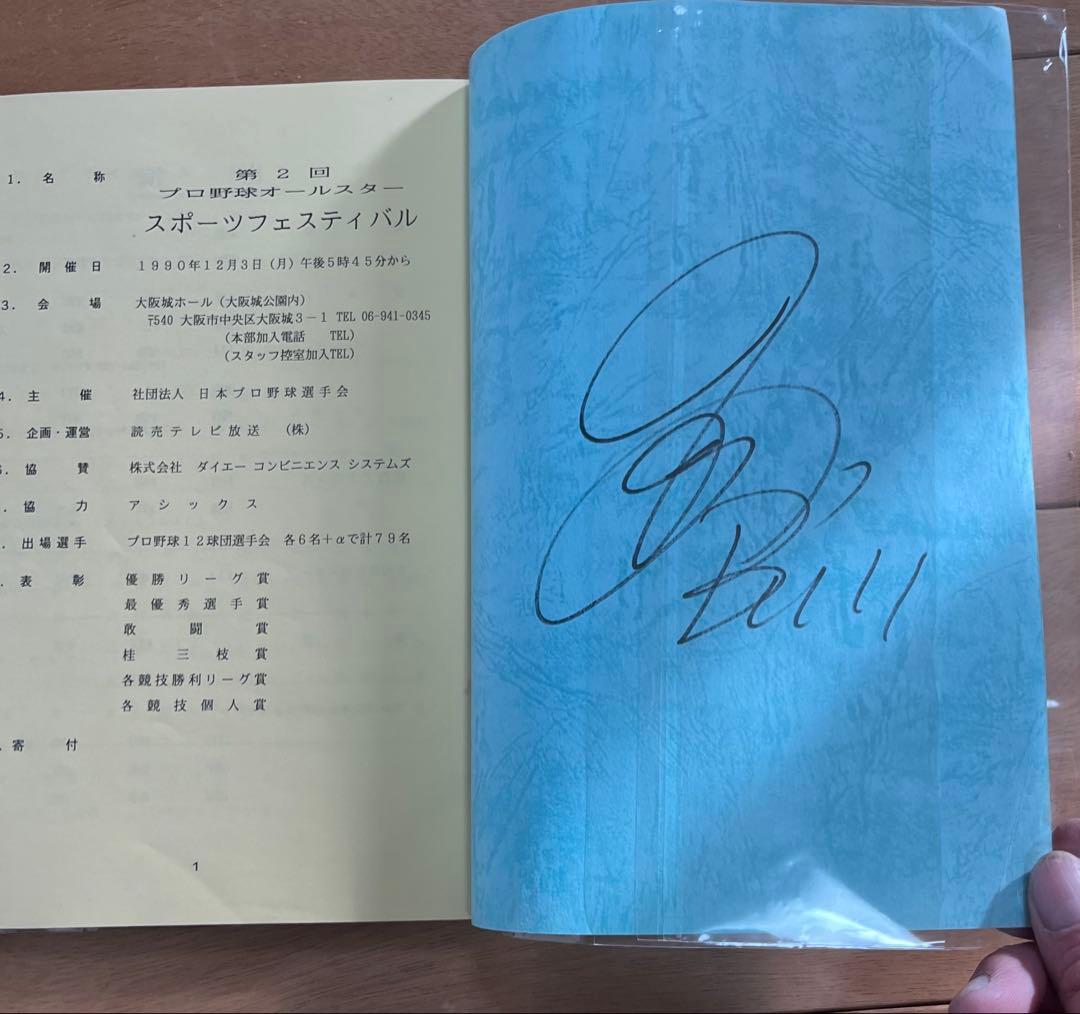 1. 名 称 第 2 回
プロ野球オールスター
スポーツフェスティバル
2. 開 催 日 1990年12月3日(月)午後5時45分から
3. 会 場 大阪城ホール(大阪城公園内)
〒540 大阪市中央区大阪城3-1 TEL 06-941-0345
(本部加入電話 TEL)
(スタッフ控室加入TEL)
4. 主 催 社団法人 日本プロ野球選手会
5. 企画・運営 読売テレビ放送 (株)
6. 協 賛 株式会社 ダイエー コンビニエンス システムズ
. 協 力 アシックス
. 出場選手 プロ野球12球団選手会 各6名+αで計79名
. 表 彰 優勝リーグ賞
最優秀選手賞
敢闘賞
桂三枝賞
各競技勝利リーグ賞
各競技個人賞
. 寄 付
1